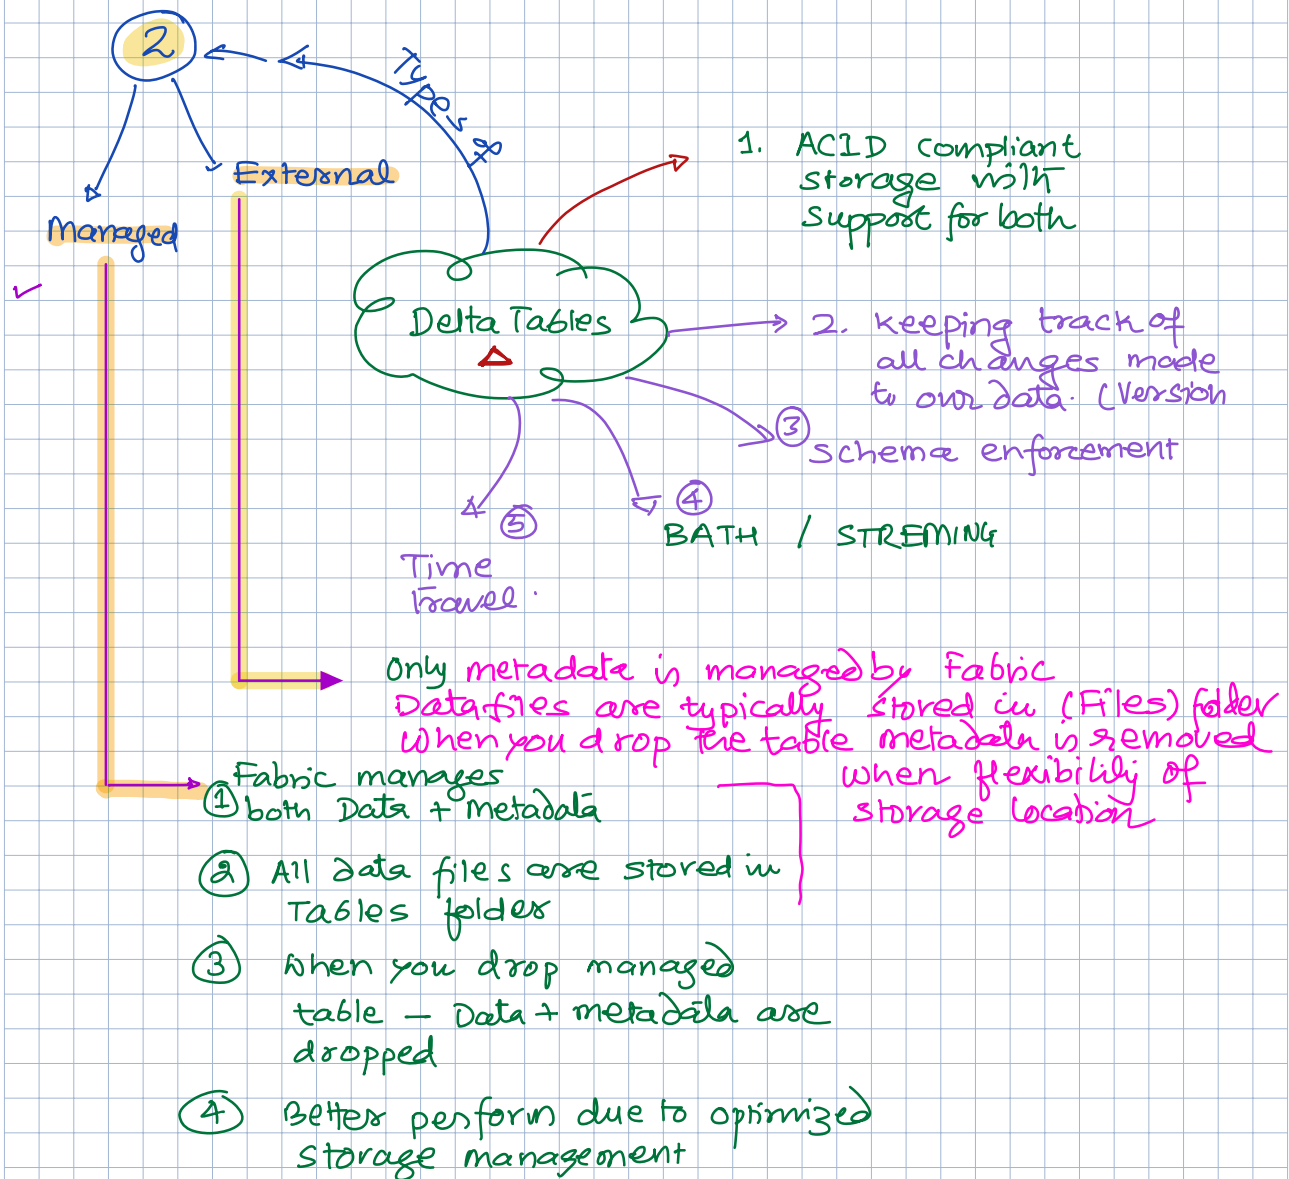 2
Types of
External
Managed
Delta Tables
1. ACID compliant
storage with
support for both
2. keeping track of
all changes made
to our data. (Version
3
schema enforcement
4
BATH / STREMING
5
Time
travel.
Only metadata is managed by Fabric
Datafiles are typically stored in (Files) folder
when you drop the table metadata is removed
when flexibility of
storage location
1 Fabric manages
both Data + metadata
2 All data files are stored in
Tables folder
3 When you drop managed
table - Data + metadata are
dropped
4 Better perform due to optimized
storage management